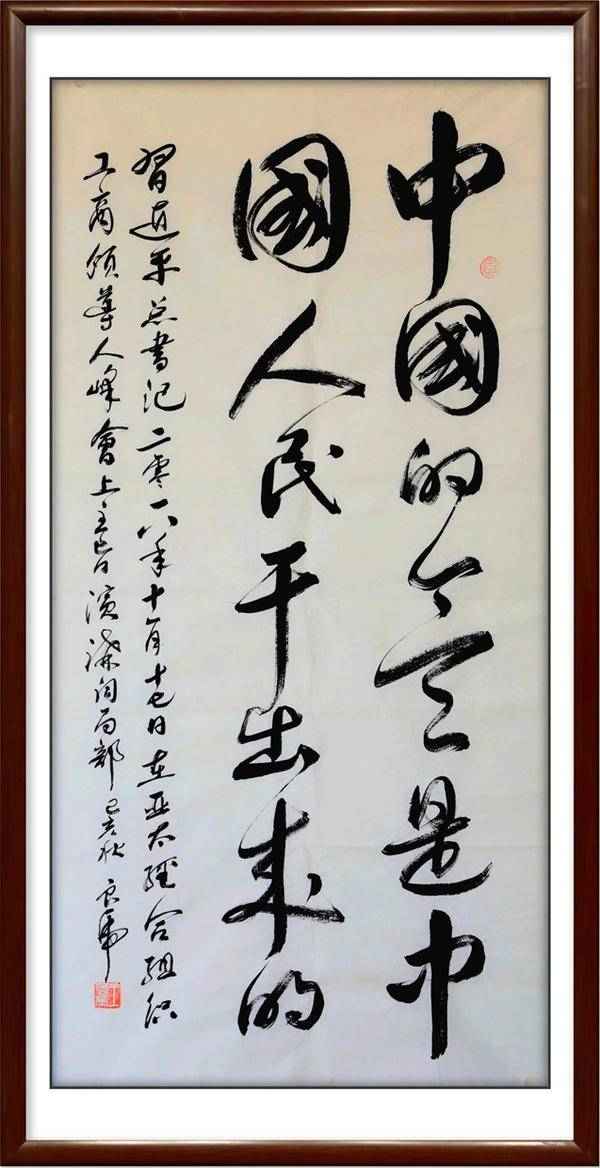 中國的今天是中
國人民干出來的
習近平总書记二零一八年十一月十七日在亚太經合組织
工商领導人峰會上主旨演講词局部 己亥秋